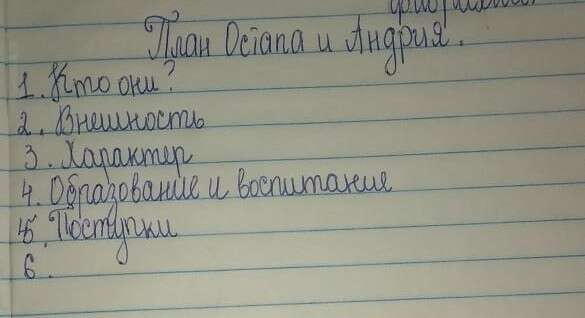 План Остапа и Андрия.
1. Кто они?
2. Внешность
3. Характер
4. Образование и воспитание
5. Поступки
6.